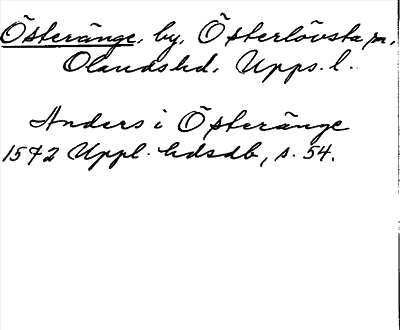 Österänge, by, Österlövsta sn,
Olands hd, Upps. l.
Anders i Österänge
1572 Uppl. hdsdb, s. 54.